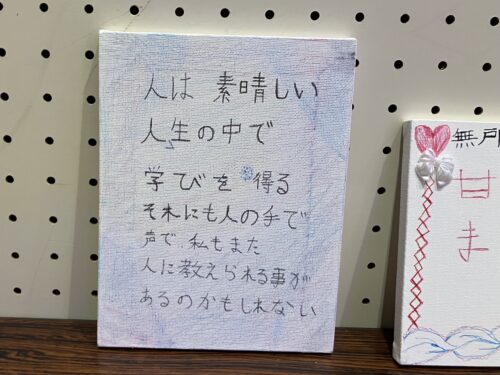 人は 素晴しい
人生の中で
学びを 得る
それにも人の手で
声で、私もまた
人に教えられる事が
あるのかもしれない
無所
甘
ま